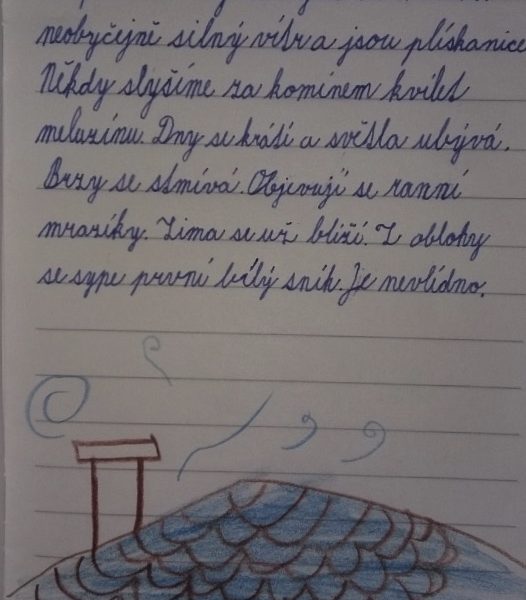 neobyčejně silný vítr a jsou plískanice
Někdy slyšíme za komínem kvílet
meluzínu. Dny se krátí a světla ubývá.
Brzy se stmívá. Objevují se ranní
mrazíky. Zima se už blíží. Z oblohy
se sype první bílý sníh. Je nevlídno.